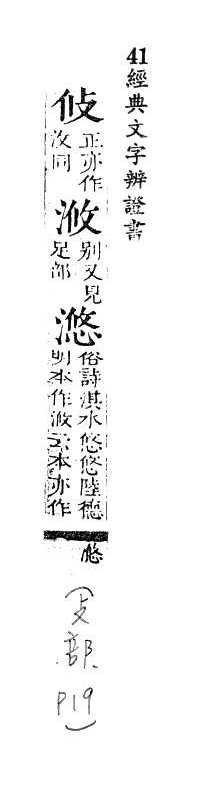 41經典文字辨證書
攸 正亦作
同
浟 別又見
足部
滺 俗詩淇水悠悠陸德
明本作浟云本亦作
滺
(攴部
P19)